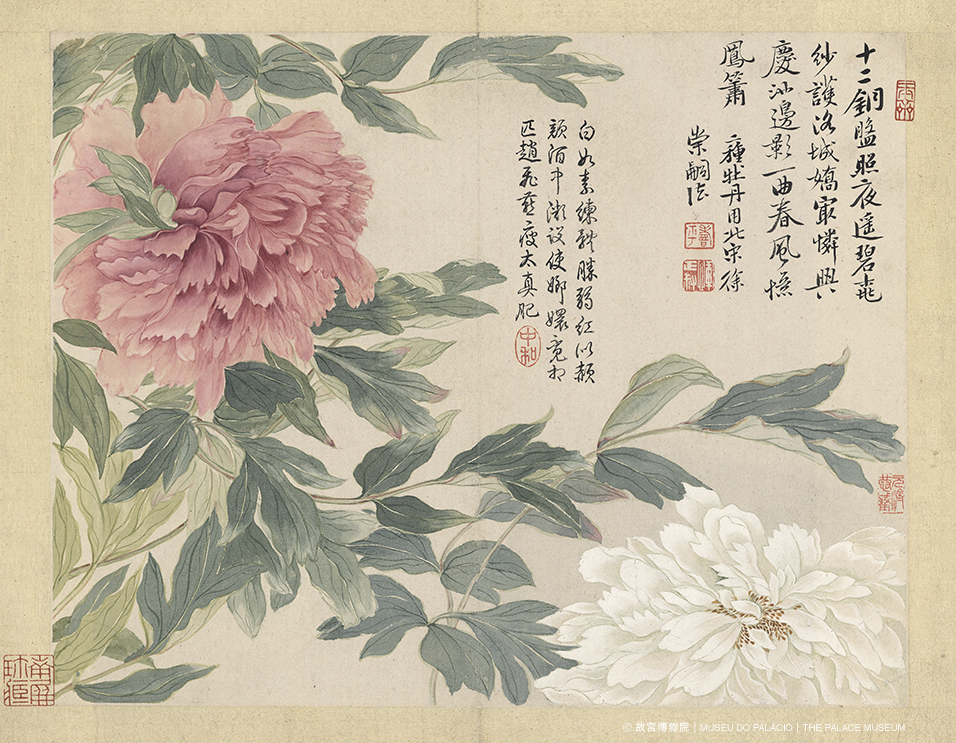 十二銅盤照夜遙碧桃
紗護洛城嬌最憐興
慶池邊影一曲春風憶
鳳簫 二種牡丹用北宋徐
崇嗣法
白如素練勝弱紅似
顏酒中潮設使相
匹趙飛燕瘦太真肥
中和
© 故宮博物院 | MUSEU DO PALÁCIO | THE PALACE MUSEUM